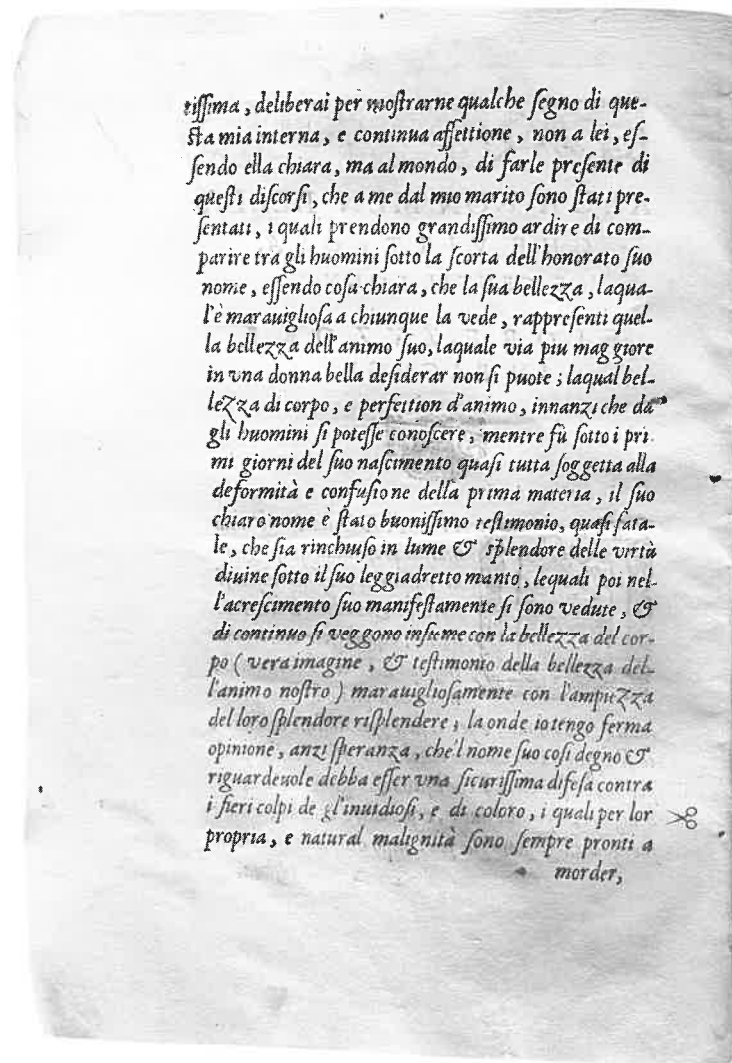 tißima, deliberai per mostrarne qualche segno di que-
sta mia interna, e continua affettione, non a lei, es-
sendo ella chiara, ma al mondo, di farle presente di
questi discorsi, che a me dal mio marito sono stati pre-
sentati, i quali prendono grandißimo ardire di com-
parire tra gli huomini sotto la scorta dell'honorato suo
nome, essendo cosa chiara, che la sua bellezza, laqua-
l'è marauigliosa a chiunque la vede, rappresenti quel-
la bellezza dell'animo suo, laquale via piu maggiore
in vna donna bella desiderar non si puote; laqual bel-
lezza di corpo, e perfettion d'animo, innanzi che da
gli huomini si potesse conoscere, mentre fù sotto i pri
mi giorni del suo nascimento quasi tutta soggetta alla
deformità e confusione della prima materia, il suo
chiaro nome è stato buonißimo testimonio, quasi fata-
le, che sia rinchiuso in lume & splendore delle virtù
diuine sotto il suo leggiadretto manto, lequali poi nel-
l'acrescimento suo manifestamente si sono vedute, &
di continuo si veggono insieme con la bellezza del cor-
po (vera imagine, & testimonio della bellezza del-
l'animo nostro) marauigliosamente con l'ampiezza
del loro splendore risplendere; la onde io tengo ferma
opinione, anzi speranza, che'l nome suo cosi degno &
riguardeuole debba esser vna sicurißima difesa contra
i fieri colpi de gl'inuidiosi, e di coloro, i quali per lor
propria, e natural malignità sono sempre pronti a
morder,